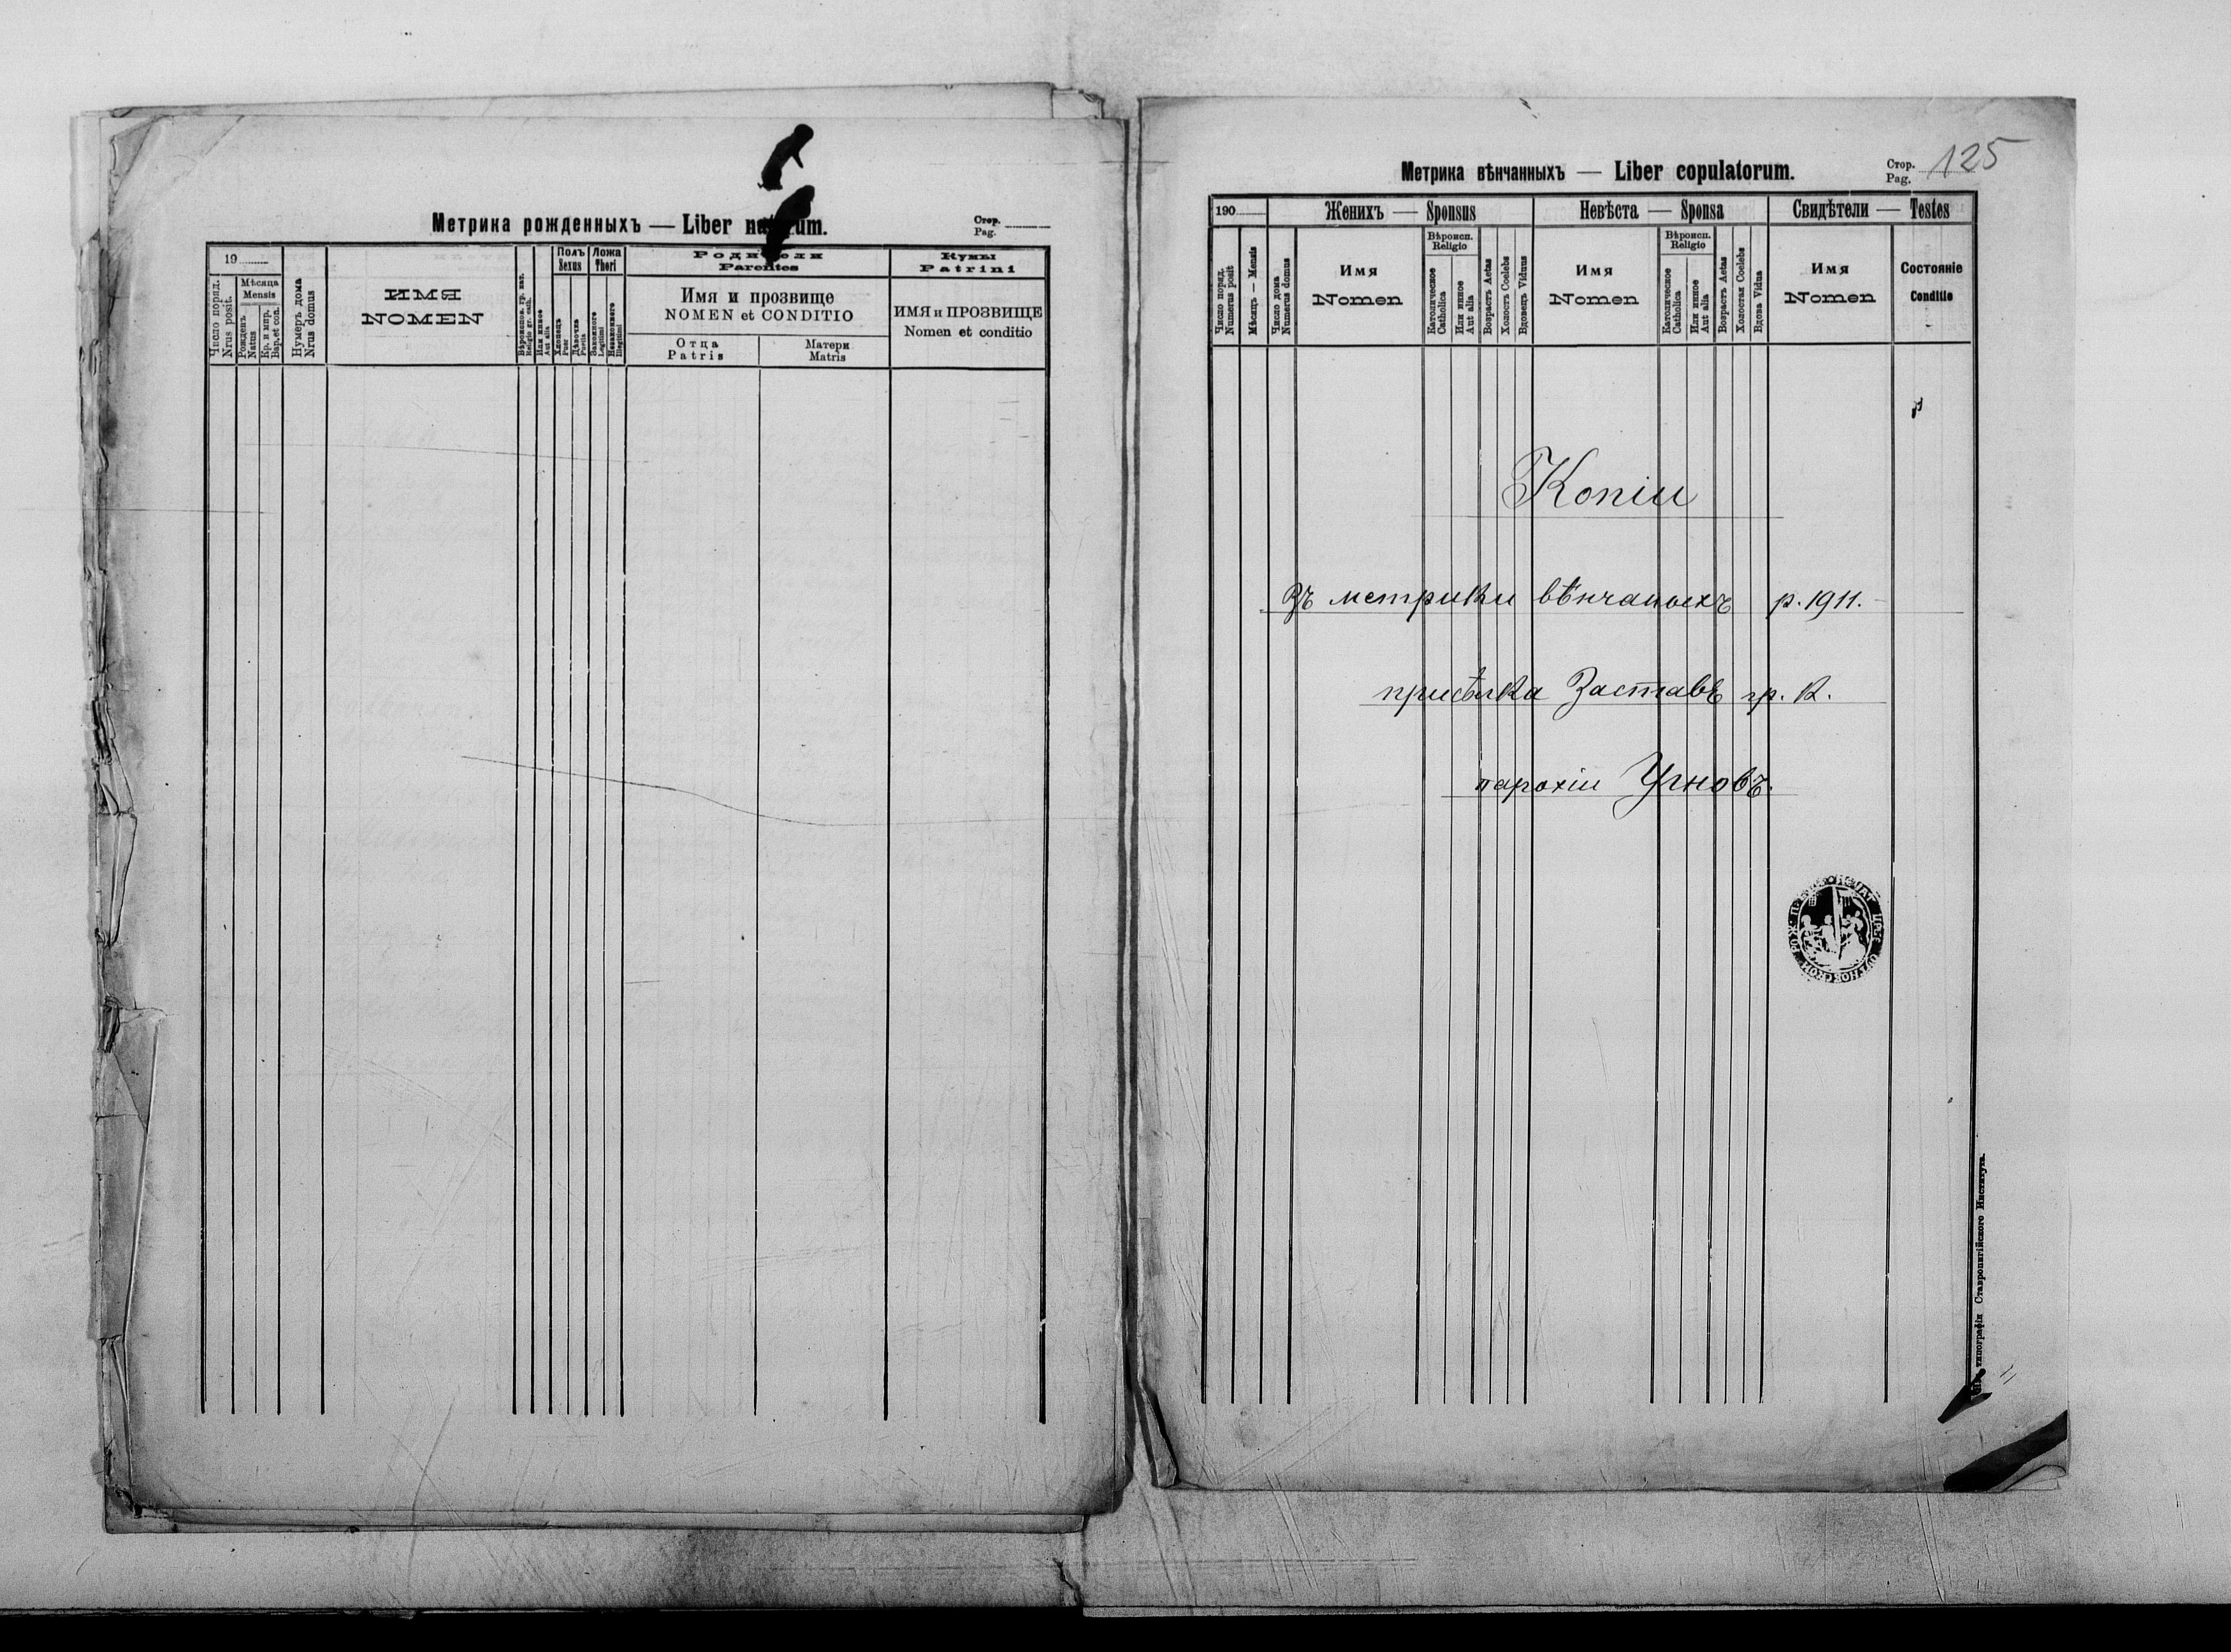 Метрика рожденныхъ — Liber natorum.
Стор.
Pag.
19
Число поряд.
Nrus posit.
Мѣсяца
Mensis
Рожденъ
Natus
Кр. и мѵр.
Bap. et con.
Нумеръ дома
Nrus domus
ИМЯ
NOMEN
Или инное
Aut alia
Полъ
Sexus
Хлопецъ
Puer
Дѣвочка
Puella
Ложа
Thori
Законного
Legitimi
Незаконного
Illegitimi
Родители
Parentes
Имя и прозвище
NOMEN et CONDITIO
Отца
Patris
Матери
Matris
Кумы
Patrini
ИМЯ и ПРОЗВИЩЕ
Nomen et conditio
Метрика вѣнчанныхъ — Liber copulatorum.
Стор.
Pag.
125
190
Число поряд.
Numerus posit
Мѣсяцъ — Mensis
Число дома
Numerus domus
Женихъ — Sponsus
Имя
Nomen
Вѣроисп.
Religio
Католическое
Catholica
Или инное
Aut alia
Возрастъ Aetas
Холостъ Coelebs
Вдовецъ Viduus
Невѣста — Sponsa
Имя
Nomen
Вѣроисп.
Religio
Католическое
Catholica
Или инное
Aut alia
Возрастъ Aetas
Холостая Coelebs
Вдова Vidua
Свидѣтели — Testes
Имя
Nomen
Состояніе
Conditio
Копіи
зъ метрики вѣнчаныхъ р. 1911.
присѣлка Заставѣ гр. к.
парохіи Угновъ.
типографіи Ставропигійского Института.